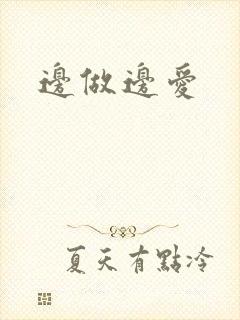 邊做邊愛
夏天有點冷